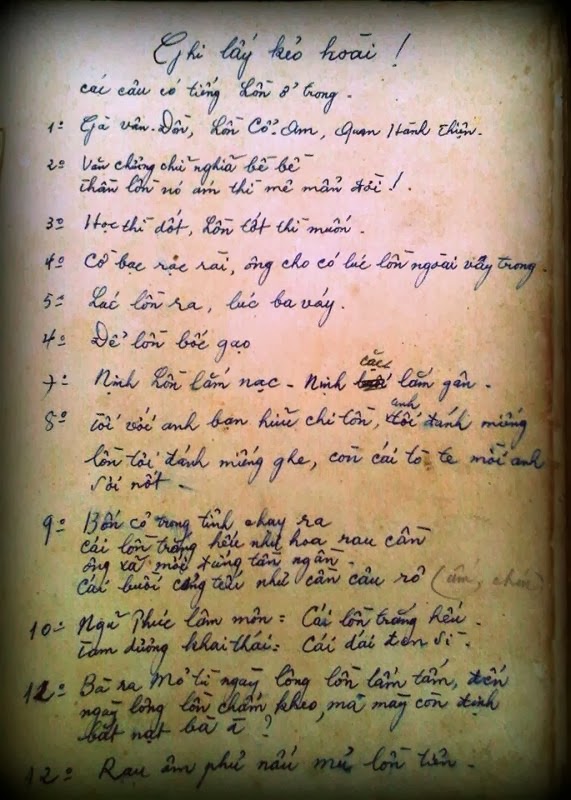 Ghi lấy kẻo hoài !
các câu có tiếng Lồn ở trong.
1º Gà Vân-Đồn, Lồn Cổ-Am, Quan Hành Thiện.
2º Văn chương chữ nghĩa bề bề
thần lồn nó ám thì mê mẩn đời !.
3º Học thì dốt, Lồn tốt thì muốn.
4º Cờ bạc rạc rài, ông cho có lúc lồn ngoài váy trong.
5º Lúc lồn ra, lúc ba váy.
4º Để lồn bốc gạo
7º Nịnh Lồn lắm nạc - Nịnh cặc lắm gân.
8º Tôi với anh bạn hữu chi lồn, anh tôi đánh miếng
lồn tôi đánh miếng ghe, còn cái tò te mời anh
sơi nốt -
9º Bốn cô trong tỉnh chạy ra
cái lồn trắng hếu như hoa rau cần
ông xã mới đứng tần ngần
cái buồi cứng tều như cần câu rô
10º Ngũ Phúc lâm môn = Cái lồn trắng hếu.
Tam dương khai thái = Cái dái đen sì.
12º Bà ra Mỏ từ ngày lông lồn lấm tấm, đến
ngày lông lồn chấm kheo, mà mày còn định
bắt nạt bà à ?
12º Rau âm phủ nấu mủ lồn tiên.